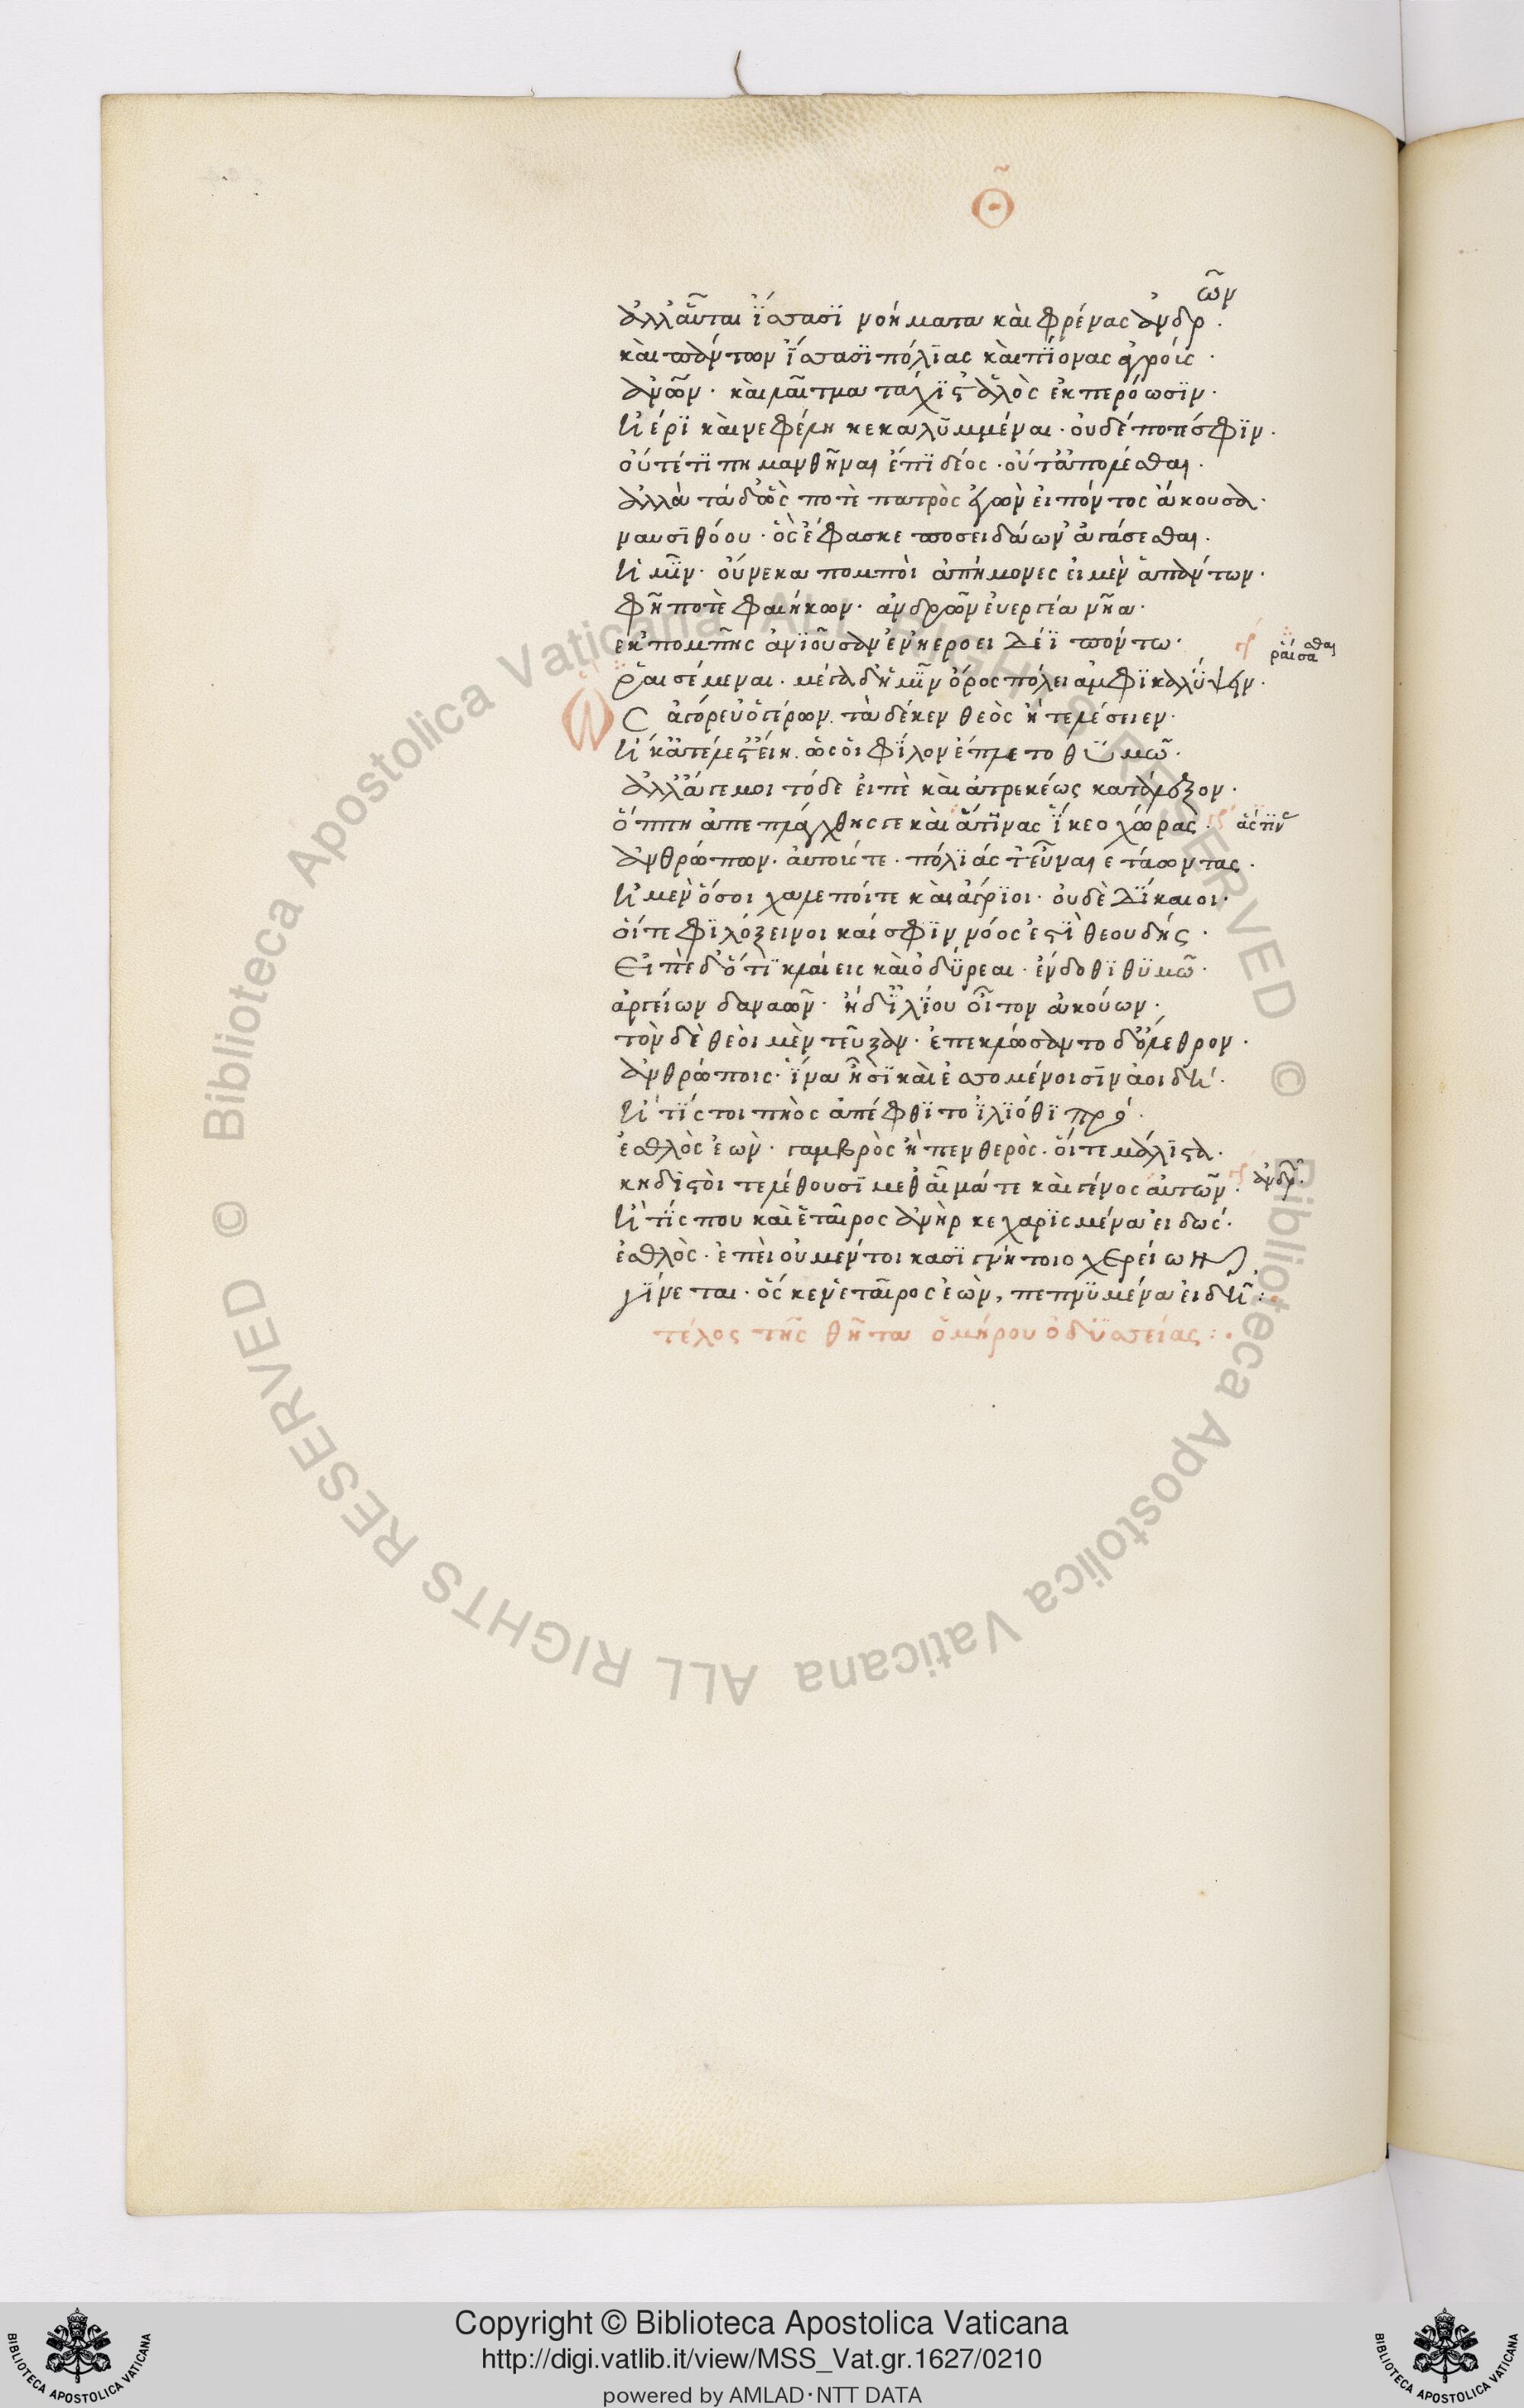 Θ
ἀλλ' αὗται ἴσασι νοήματα καὶ φρένας ἀνδρῶν.
καὶ πάντων ἴσασι πόλιας καὶ πίονας ἀγροὺς.
ἀνδρῶν. καὶ λαῖτμα τάχισθ' ἁλὸς ἐκπερόωσιν.
ἠέρι καὶ νεφέλη κεκαλυμμέναι. οὐδέ ποτέ σφιν.
οὔτέ τι πημανθῆναι ἔπι δέος. οὔτ' ἀπολέσθαι.
ἀλλὰ τάδ' ὥς ποτὲ πατρὸς ἐγὼν εἰπόντος ἄκουσα.
ναυσιθόου. ὃς ἔφασκε ποσειδάων' ἀγάσεσθαι.
ἡμῖν. οὕνεκα πομποὶ ἀπήμονες εἰμὲν ἁπάντων.
φῆ ποτὲ φαιήκων. ἀνδρῶν εὐεργέα νῆα.
ἐκ πομπῆς ἀνιοῦσαν ἐν ἠεροειδέϊ πόντω.
ῥαισέμεναι. μέγα δ' ἧμιν ὄρος πόλει ἀμφικαλύψειν.
γρ ῥαίσασθαι
Ὣς ἀγόρευ' ὁ γέρων. τὰ δέ κεν θεὸς ἢ τελέσειεν.
ἤ κ' ἀτέλεστ' εἴη. ὥς οἱ φίλον ἔπλετο θυμῶ.
ἀλλ' ἄγε μοι τόδε εἰπὲ καὶ ἀτρεκέως κατάλεξον.
ὅππη ἀπεπλάγχθης τε καὶ ἅτινας ἵκεο χώρας.
γρ ἅς τινας
ἀνθρώπων. αὐτούς τε. πόλιάς τ' εὖ ναιετάωντας.
ἠ μὲν ὅσοι χαλεποί τε καὶ ἄγριοι. οὐδὲ δίκαιοι.
οἵ τε φιλόξεινοι καί σφιν νόος ἐστὶ θεουδής.
Εἰπὲ δ' ὅ τι κλαίεις καὶ ὀδύρεαι. ἔνδοθι θυμῶ.
ἀργείων δαναῶν. ἠδ' ἰλίου οἶτον ἀκούων.
τὸν δὲ θεοὶ μὲν τεῦξαν. ἐπεκλώσαντο δ' ὄλεθρον.
ἀνθρώποις. ἵνα ἦσι καὶ ἐσσομένοισιν ἀοιδή.
ἤ τίς τοι πηὸς ἀπέφθιτο ἰλιόθι πρό.
ἐσθλὸς ἐὼν. γαμβρὸς ἢ πενθερὸς. οἵ τε μάλιστα.
κήδιστοι τελέθουσι μεθ' αἷμά τε καὶ γένος αὐτῶν.
γρ ἀνδρῶν.
ἤ τίς που καὶ ἑταῖρος ἀνὴρ κεχαρισμένα εἰδώς.
ἐσθλὸς. ἐπεὶ οὐ μέν τοι κασιγνήτοιο χερείων
γίνεται. ὅς κεν ἑταῖρος ἐὼν, πεπνυμένα εἰδῆ:
τέλος τῆς θῆτα ὁμήρου ὀδυσσείας:
Copyright © Biblioteca Apostolica Vaticana
http://digi.vatlib.it/view/MSS_Vat.gr.1627/0210
powered by AMLAD·NTT DATA
BIBLIOTECA APOSTOLICA VATICANA
BIBLIOTECA APOSTOLICA VATICANA
© Biblioteca Apostolica Vaticana ALL RIGHTS RESERVED
© Biblioteca Apostolica Vaticana ALL RIGHTS RESERVED